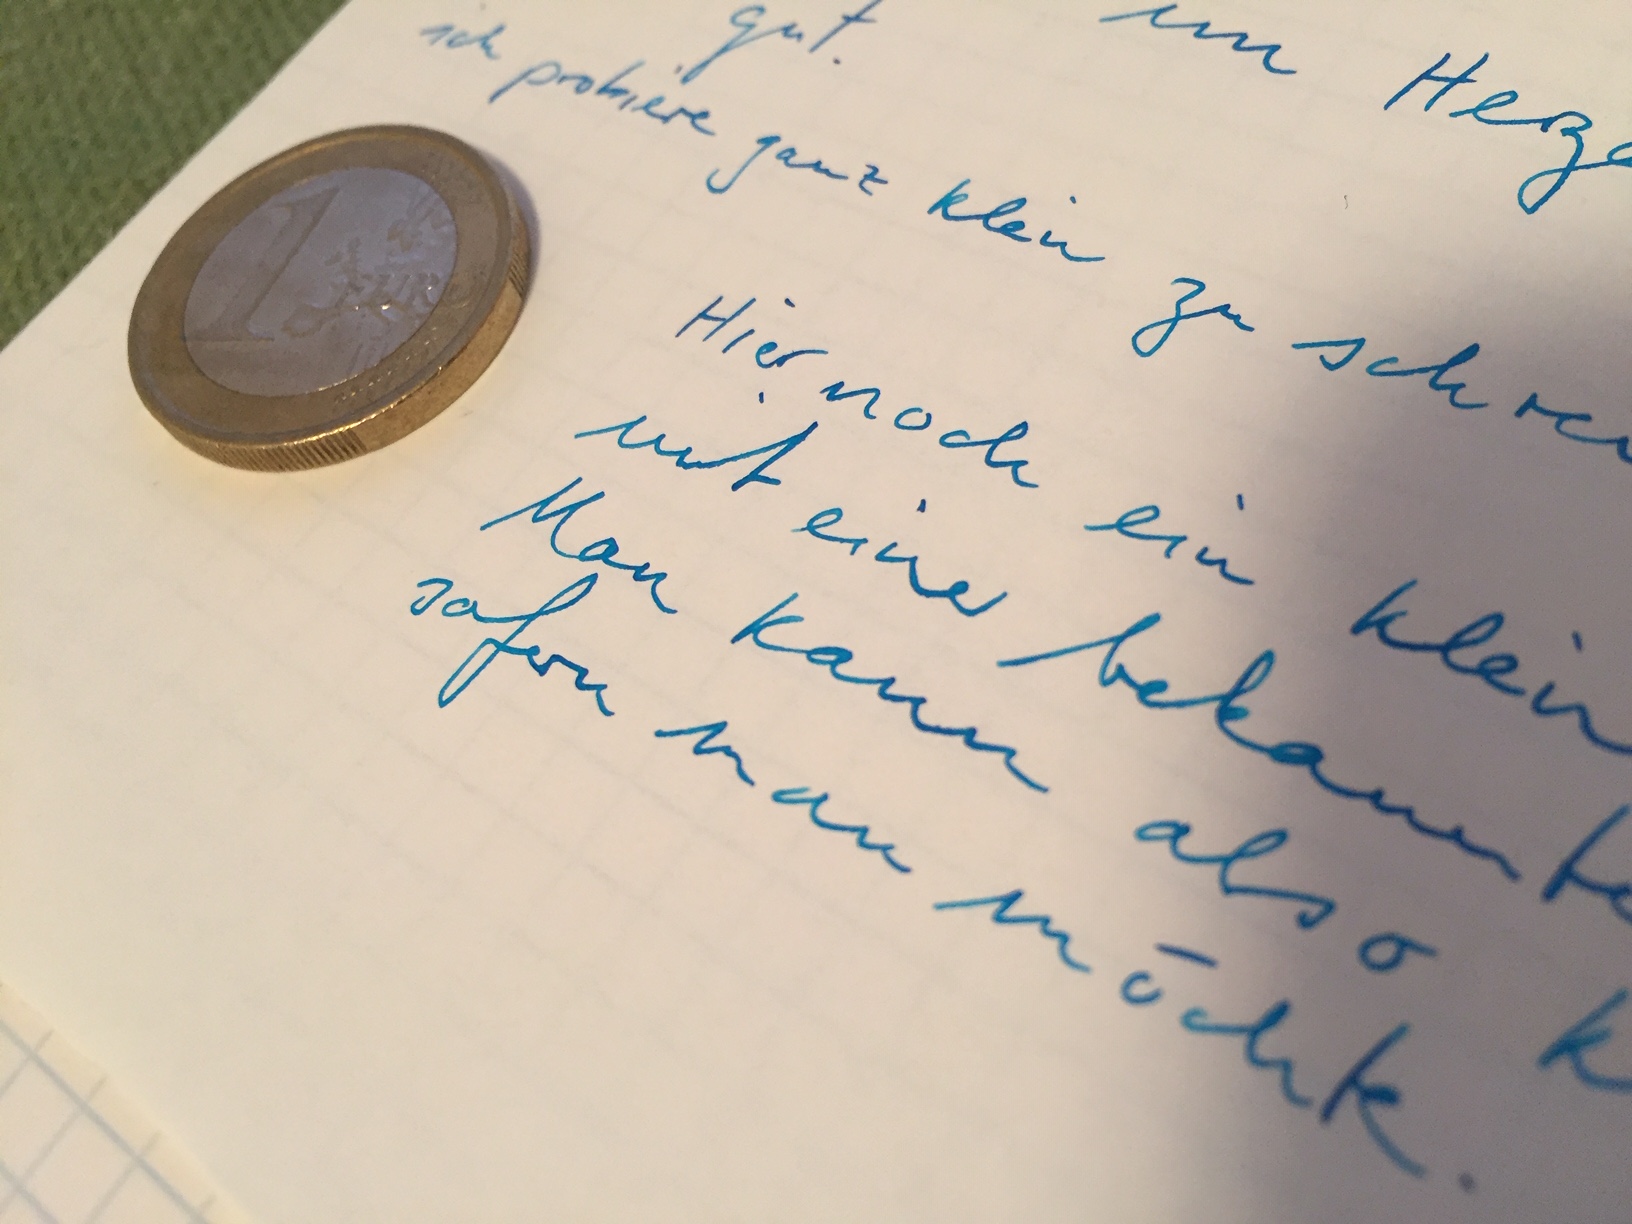 gut. im Herze
ich probiere ganz klein zu schrei
Hier noch ein klein
mit einer bekannte
Man kann also k
sofern man möchte.
1 EURO